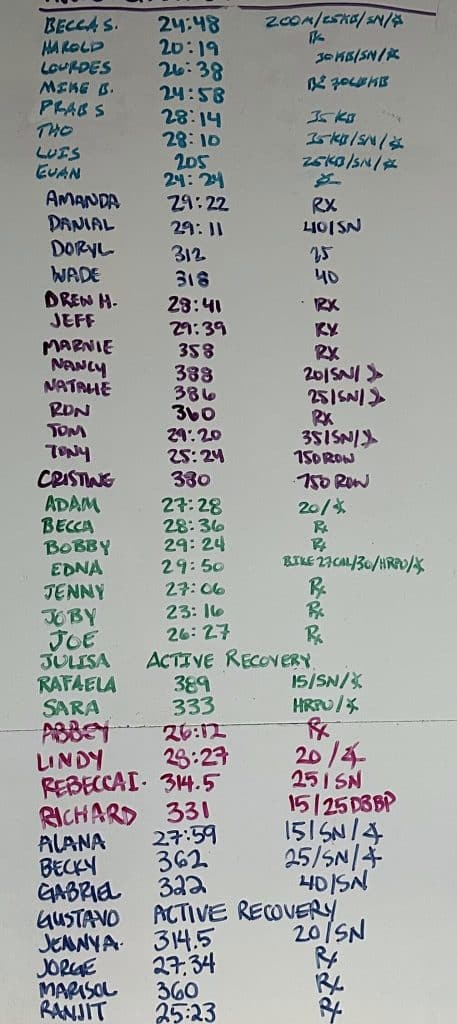 BECCA S. 24:48 200M/25KB/SN/
HAROLD 20:19 Rx
LOURDES 26:38 10KB/SN/
MIKE B. 24:58
PRAB S 28:14 35 KB
THO 28:10 35KB/SN/
LUIS 205 25KB/SN/
EVAN 24:24
AMANDA 29:22 RX
DANIAL 29:11 40/SN
DORYL 312 25
WADE 318 40
DREW H. 28:41 RX
JEFF 29:39 RX
MARNIE 358 RX
NANCY 388 20/SN/
NATALIE 386 25/SN/
RON 360 RX
TOM 29:20 35/SN/
TONY 25:24 750 ROW
CRISTINE 380 750 ROW
ADAM 27:28 20/
BECCA 28:36 Rx
BOBBY 29:24 Rx
EDNA 29:50 BIKE 27CAL/30/HRPU/
JENNY 27:06 Rx
JOBY 23:16 Rx
JOE 26:27 Rx
JULISA ACTIVE RECOVERY
RAFAELA 389 15/SN/
SARA 333 HRPU/
ABBEY 26:12 Rx
LINDY 28:27 20/
REBECCA I. 314.5 25/SN
RICHARD 331 15/25DBBP
ALANA 27:59 15/SN/
BECKY 362 25/SN/
GABRIEL 322 40/SN
GUSTAVO ACTIVE RECOVERY
JENNY A. 314.5 20/SN
JORGE 27:34 Rx
MARISOL 360 Rx
RANJIT 25:23 Rx